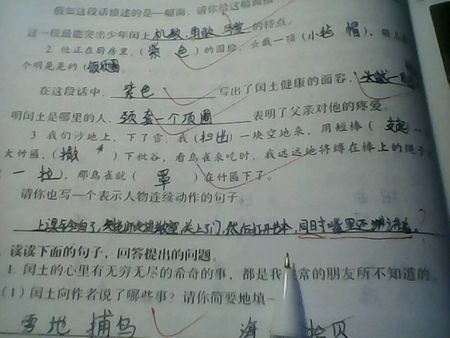 假如这段话描述的是一幅画,请你给这幅画
这一段最能突出少年闰土机敏、勇敢 的特点。
2. 他正在厨房里,(紫 色)的圆脸,头戴一顶(小毡 帽),颈上
个明晃晃的(银项圈
在这段话中, 紫色 写出了闰土健康的面容,头戴一
明闰土是哪里的人, 颈套一个项圈 表明了父亲对他的疼爱。
3. 我们沙地上,下了雪,我(扫出)一块空地来,用短棒(支起
大竹匾,(撒 )下秕谷,看鸟雀来吃时,我远远地将缚在棒上的绳子
一 拉),那鸟雀就( 罩 )在竹匾下了。
请你也写一个表示人物连续动作的句子。
上课 了, 老师走进教室,关上了门,然后打开书本,同时嘴里还
读读下面的句子,回答提出的问题。
1. 闰土的心里有无穷无尽的希奇的事,都是我 常的朋友所不知道的。
(1) 闰土向作者说了哪些事?请你简要地填一
雪地 捕鸟 海 拾贝